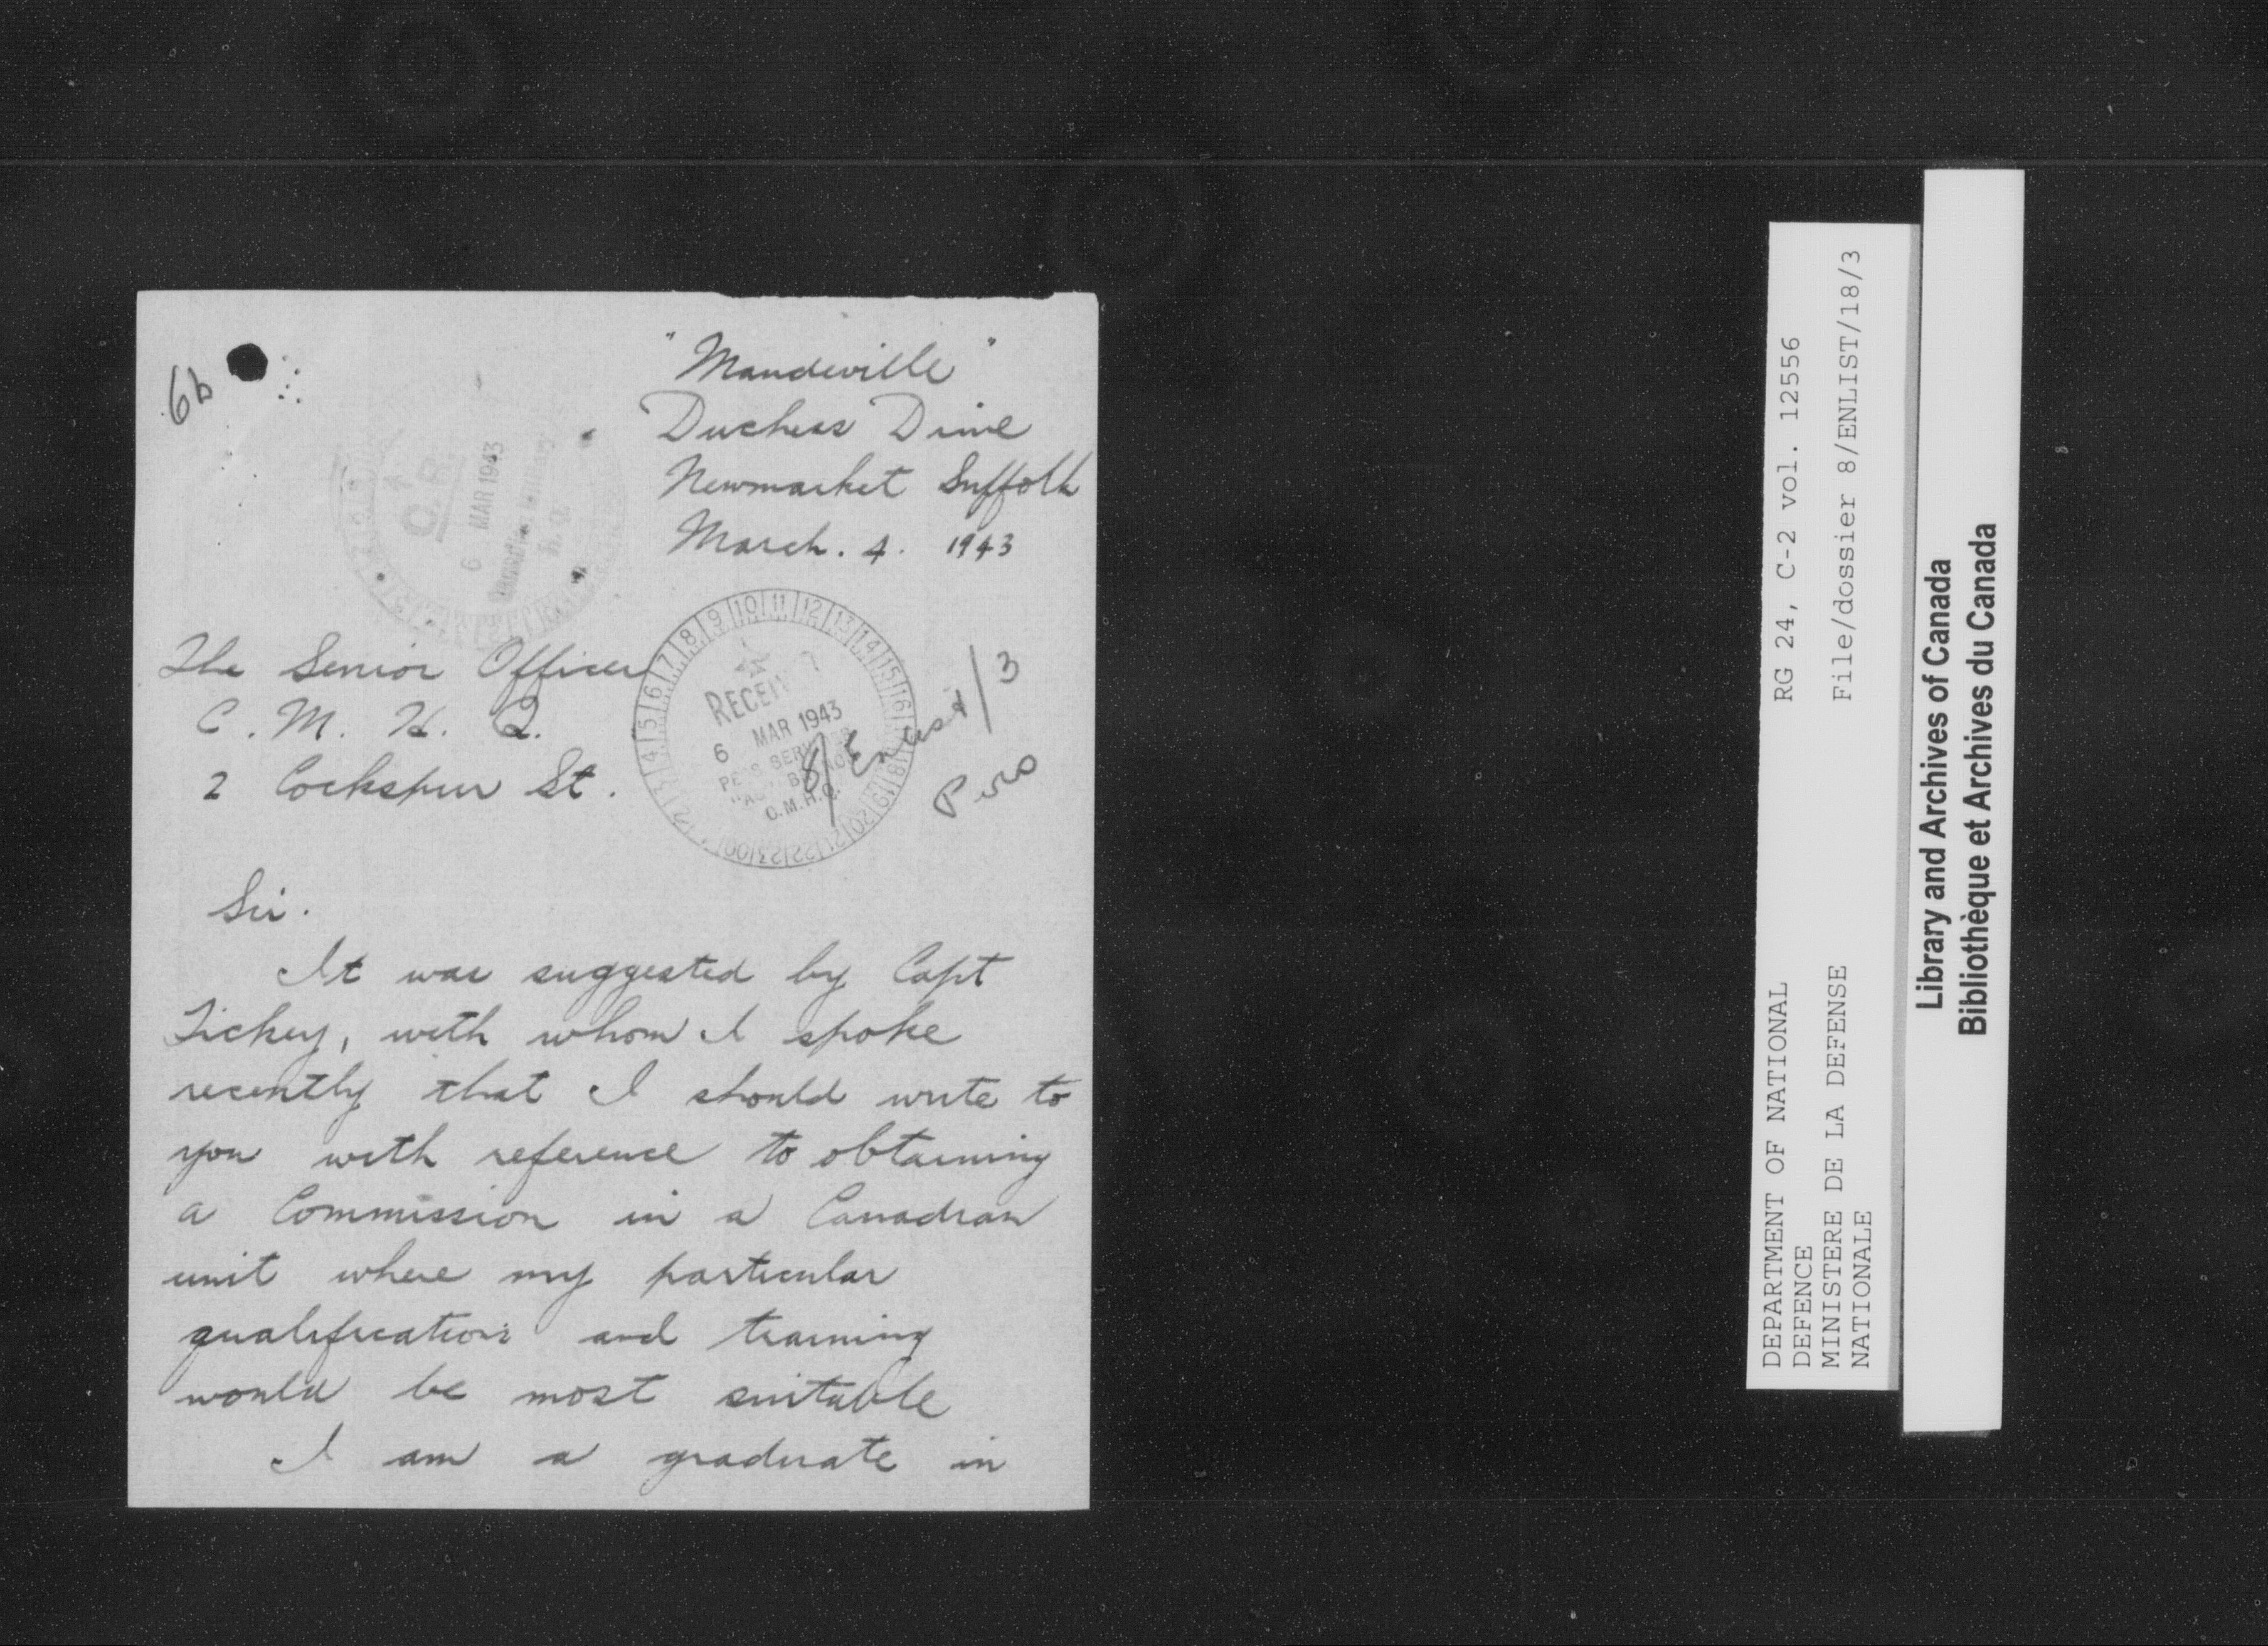 6b
"Mandeville"
Duchess Drive
Newmarket Suffolk
March. 4. 1943
6 MAR 1943
The Senior Officer
C. M. H. Q.
2 Cockspur St.
6 MAR 1943
C.M.H.Q.
8/Enlist/3
Sir.
It was suggested by Capt
Tickey, with whom I spoke
recently that I should write to
you with reference to obtaining
a Commission in a Canadian
unit where my particular
qualifications and training
would be most suitable
I am a graduate in
DEPARTMENT OF NATIONAL
DEFENCE
MINISTERE DE LA DEFENSE
NATIONALE
RG 24, C-2 vol. 12556
File/dossier 8/ENLIST/18/3
Library and Archives of Canada
Bibliothèque et Archives du Canada